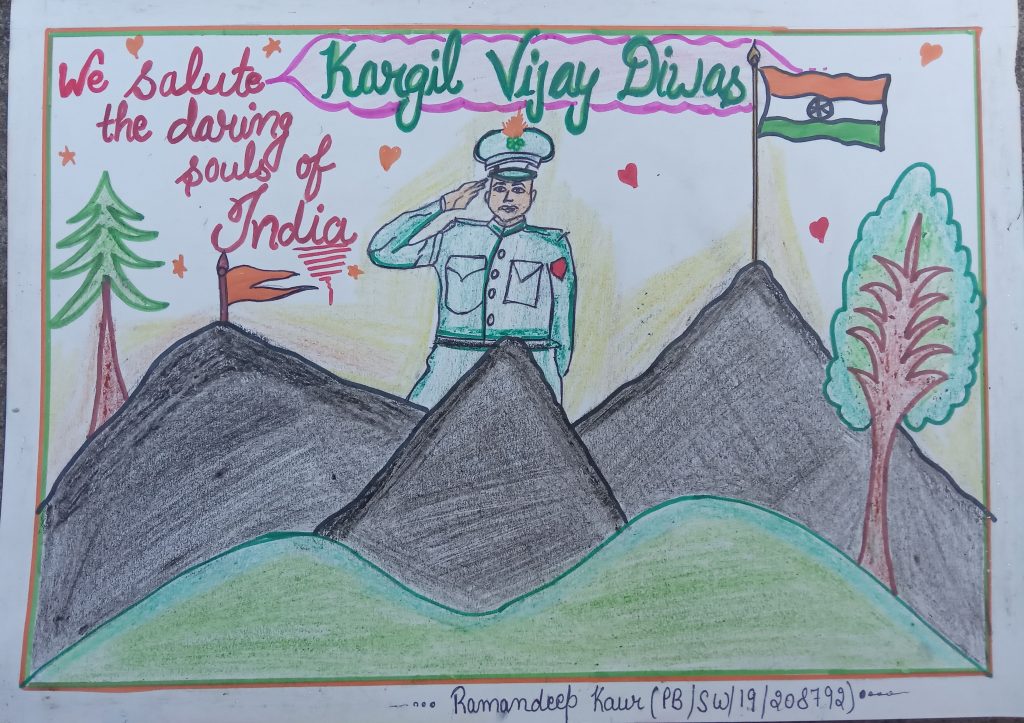 Kargil Vijay Diwas
We salute
the daring
souls of
India
Ramandeep Kaur (PB/SW/19/208792)